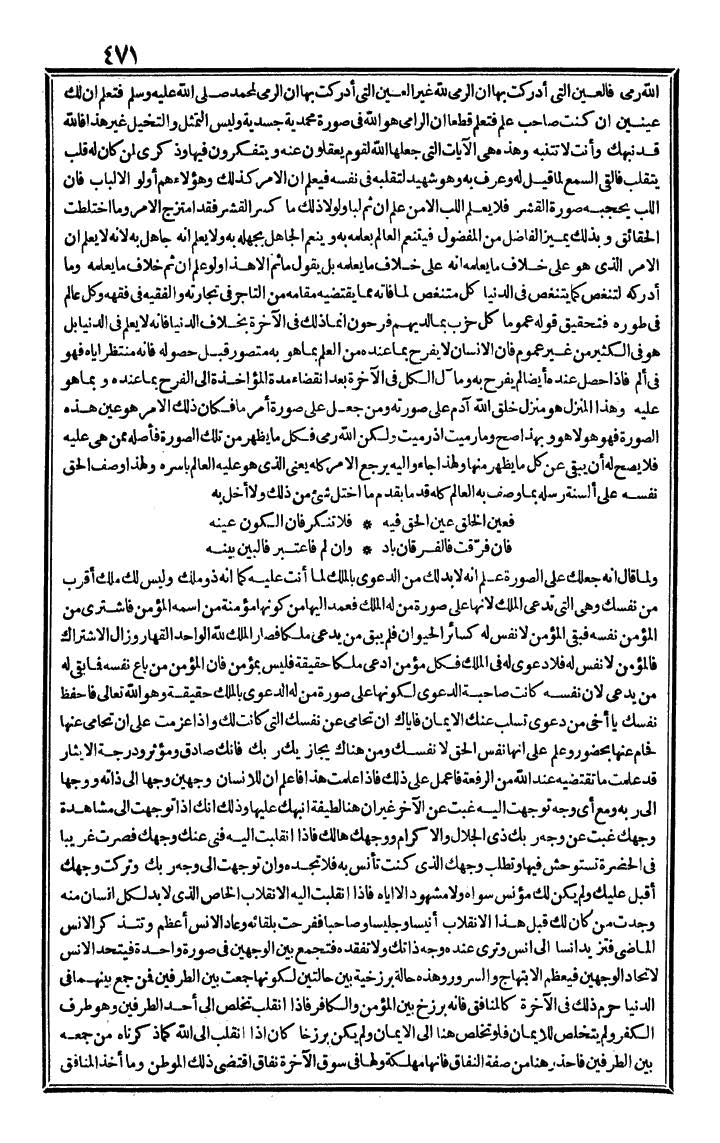 ٤٧١
الله رمى فالعين التى أدركت بها ان الرمى لله غير العين التى أدركت بها ان الرمى لمحمد صلى الله عليه وسلم فتعلم ان لك
عينين ان كنت صاحب علم فتعلم قطعا ان الرامى هو الله فى صورة محمدية جسدية وليس التمثل والتخيل غير هذا فالله
قد نبهك وأنت لا تتنبه وهذه هى الآيات التى جعلها الله لقوم يعقلون عنه ويتفكرون فيها وذكرى لمن كان له قلب
يتقلب فالتى السمع لما قيل له وعرف به وهو شهيد لتقلبه فى نفسه فيعلم ان الامر كذلك وهؤلاء هم أولو الالباب فان
اللب يحجبه صورة القشر فلا يعلم اللب الا من علم ان ثم لبا ولولا ذلك ما كسر القشر فقد امتزج الامر وما اختلطت
الحقائق وبذلك يميز الفاضل من المفضول فيتنعم العالم بعلمه به وينعم الجاهل بجهله به ولا يعلم انه جاهل به لانه لا يعلم ان
الامر الذى هو على خلاف ما يعلمه انه على خلاف ما يعلمه بل يقول ما ثم الا هذا ولو علم ان ثم خلاف ما يعلمه وما
أدركه لتنغص كما يتنغص فى الدنيا كل متنغص لما فاته مما يقتضيه مقامه من التاجر فى تجارته والفقيه فى فقهه وكل عالم
فى طوره فتحقيق قوله عموما كل حزب بما لديهم فرحون انما ذلك فى الآخرة بخلاف الدنيا فانه لا يعلم فى الدنيا بل
هو فى الكثير من غير عموم فان الانسان لا يفرح بما عنده من العلم بما هو به متصور قبل حصوله فانه منتظر اياه فهو
فى ألم فاذا حصل عنده أيضا لم يفرح به وما آل الكل فى الآخرة بعد انقضاء مدة المؤاخذة الى الفرح بما عنده وبما هو
عليه وهذا المنزل هو منزل خلق الله آدم على صورته ومن جعل على صورة أمر ما فكان ذلك الامر هو عين هذه
الصورة فهو هو لا هو وبهذا صح وما رميت اذ رميت ولكن الله رمى فكل ما يظهر من تلك الصورة فأصله ممن هى عليه
فلا يصح له أن يبقى عن كل ما يظهر منها ولهذا جاء واليه يرجع الامر كله يعنى الذى هو عليه العالم باسره ولهذا وصف الحق
نفسه على ألسنة رسله بما وصف به العالم كله قدما بقدم ما اختل شئ من ذلك ولا أخل به
فعين الخلق عين الحق فيه * فلا تنكر فان الكون عينه
فان فرّقت فالفرقان باد * وان لم فاعتبر فالبين بينه
ولما قال انه جعلك على الصورة علم انه لا بد لك من الدعوى بالملك لما أنت عليه كما انه ذو ملك وليس لك ملك أقرب
من نفسك وهى التى تدعى الملك لانها على صورة من له الملك فعمد اليها من كونها مؤمنة من اسمه المؤمن فاشترى من
المؤمن نفسه فبقى المؤمن لا نفس له كسائر الحيوان فلم يبق من يدعى ملكا فصار الملك لله الواحد القهار وزال الاشتراك
فالمؤمن لا نفس له فلا دعوى له فى الملك فكل مؤمن ادعى ملكا حقيقة فليس بمؤمن فان المؤمن من باع نفسه فما بقى له
من يدعى لان نفسه كانت صاحبة الدعوى لكونها على صورة من له الدعوى بالملك حقيقة وهو الله تعالى فاحفظ
نفسك يا أخى من دعوى تسلب عنك الايمان فاياك ان تحامى عن نفسك التى كانت لك واذا عزمت على ان تحامى عنها
فحام عنها بحضور وعلم على انها نفس الحق لا نفسك ومن هناك يجازيك ربك فانك صادق ومؤثر ودرجة الايثار
قد علمت ما تقتضيه عند الله من الرفعة فاعمل على ذلك فاذا علمت هذا فاعلم ان للانسان وجهين وجها الى ذاته ووجها
الى ربه ومع أى وجه توجهت اليه غبت عن الآخر غير ان هنا لطيفة انبهك عليها وذلك انك اذا توجهت الى مشاهدة
وجهك غبت عن وجه ربك ذى الجلال والاكرام ووجهك هالك فاذا انقلبت اليه فنى عنك وجهك فصرت غريبا
فى الحضرة تستوحش فيها وتطلب وجهك الذى كنت تأنس به فلا تجده وان توجهت الى وجه ربك وتركت وجهك
أقبل عليك ولم يكن لك مؤنس سواه ولا مشهود الا اياه فاذا انقلبت اليه الانقلاب الخاص الذى لا بد لكل انسان منه
وجدت من كان لك قبل هذا الانقلاب أنيسا وجليسا وصاحبا ففرحت بلقائه وعاد الانس أعظم وتتذكر الانس
الماضى فتزيد انسا الى انس وترى عنده وجه ذاتك ولا تفقده فتجمع بين الوجهين فى صورة واحدة فيتحد الانس
لاتحاد الوجهين فيعظم الابتهاج والسرور وهذه حالة برزخية بين حالتين لكونها جمعت بين الطرفين فمن جمع بينهما فى
الدنيا حرم ذلك فى الآخرة كالمنافق فانه برزخ بين المؤمن والكافر فاذا انقلب تخلص الى أحد الطرفين وهو طرف
الكفر ولم يتخلص للايمان فلو تخلص هنا الى الايمان ولم يكن برزخا كان اذا انقلب الى الله كما ذكرناه من جمعه
بين الطرفين فاحذر هنا من صفة النفاق فانها مهلكة ولها فى سوق الآخرة نفاق اقتضى ذلك الموطن وما أخذ المنافق